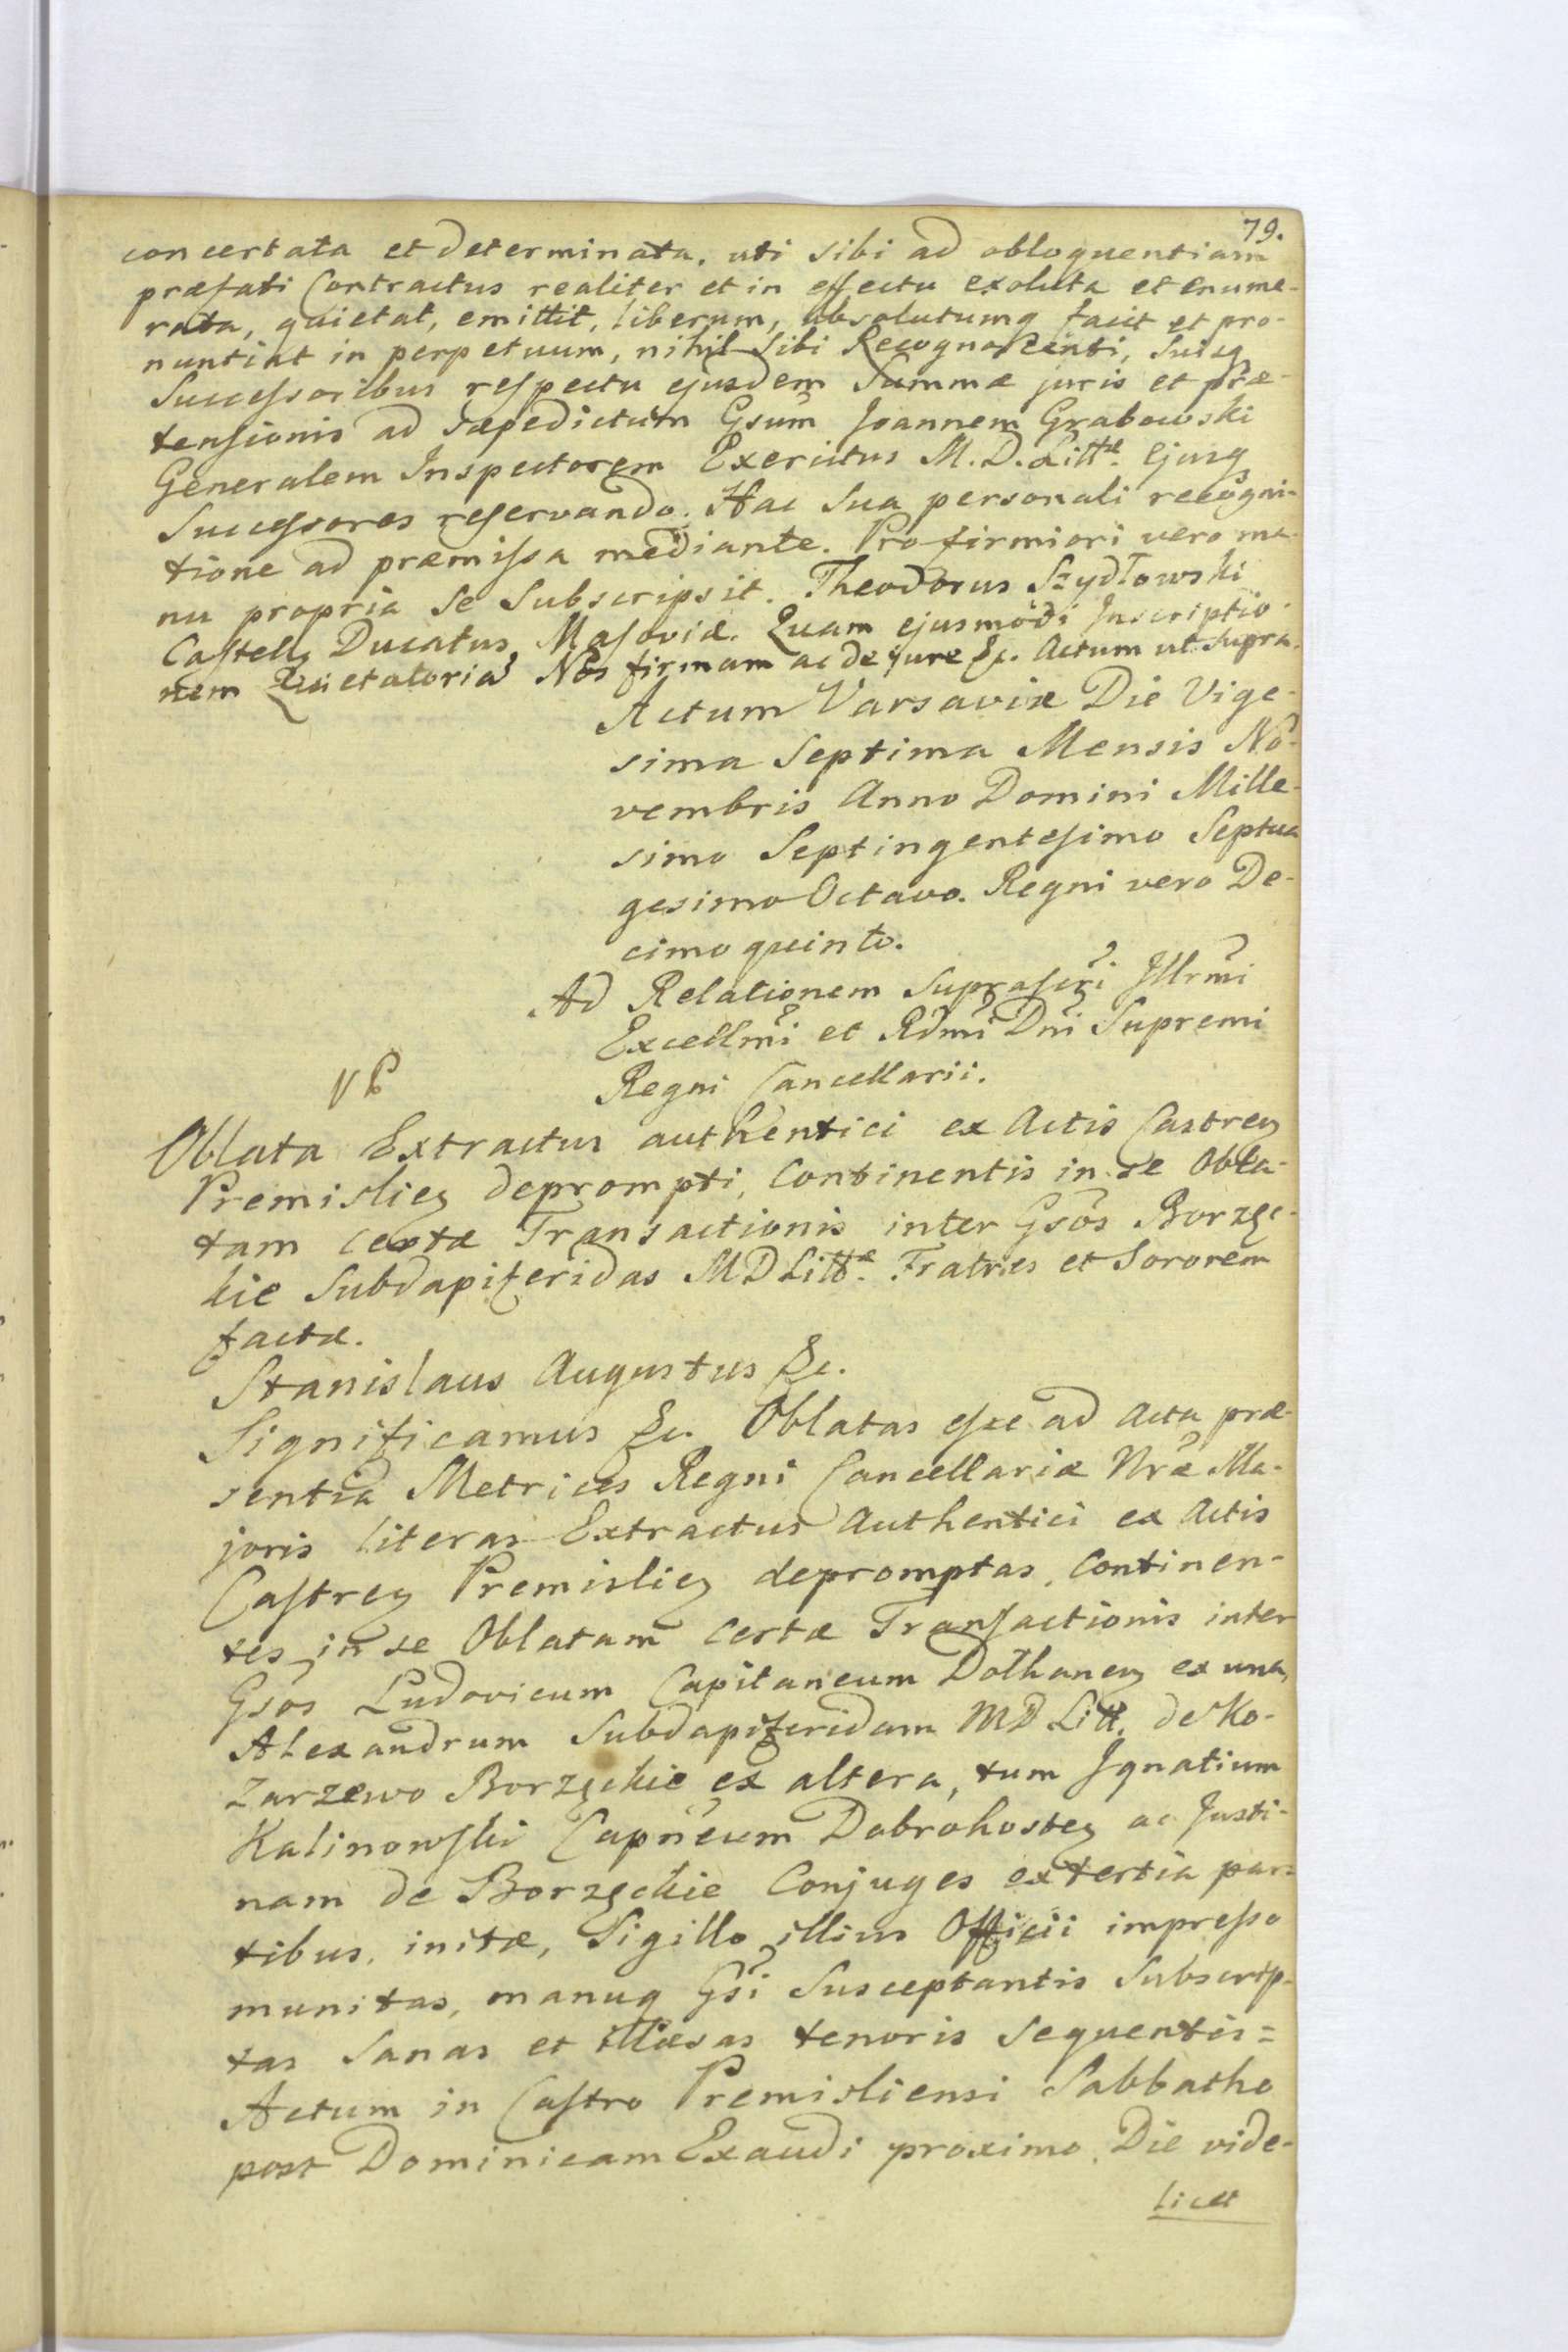 79.
concertata et determinata, uti sibi ad obloquentiam
præfati Contractus realiter et in effectu exoluta et enume-
rata, quietat, emittit, liberum, absolutumq facit et pro-
nuntiat in perpetuum, nihil Sibi Recognoscenti, Suisq
Successoribus respectu ejusdem Summæ juris et præ-
tensionis ad sæpedictum Gsum Joannem Grabowski
Generalem Inspectorem Exercitus M. D. Littæ. Ejusq
Successores reservando. Hac Sua personali recogni-
tione ad præmissa mediante. Pro firmiori vero ma-
nu propria Se Subscripsit. Theodorus Szydłowski
Castell, Ducatus Masoviæ. Quam ejusmodi Inscriptio-
nem Quietatoria Nos firmam ac de jure &c. Actum ut Supra.
Actum Varsaviæ Die Vige-
sima Septima Mensis No-
vembris Anno Domini Mille-
simo Septingentesimo Septua
gesimo Octavo. Regni vero De-
cimo quinto.
Ad Relationem Suprascri Illrmi
Excellmi et Rdmi Dni Supremi
Regni Cancellarii.
Oblata Extractus authentici ex Actis Castren
Premislien deprompti, Continentis in se Obla-
tam certæ Transactionis inter Gsos Borzęc-
kie Subdapiferidas MD Littæ. Fratres et Sororem
factæ.
Stanislaus Augustus &c.
Significamus &c. Oblatas esse ad Acta præ-
sentia Metrices Regni Cancellariæ Nræ Ma-
joris literas Extractus Authentici ex Actis
Castren Premislien depromptas, Continen-
tes in se Oblatam Certæ Transactionis inter
Gsos Ludovicum Capitaneum Dolhanen ex una,
Alexandrum Subdapiferidam MD Litt. de Ko-
zarzewo Borzęckie ex altera, tum Ignatium
Kalinowski Capneum Dobrohosten ac Justi-
nam de Borzęckie Conjuges ex tertia par-
tibus, initæ, Sigillo illius Officii impresso
munitas, manuq Gsi Susceptantis Subscrip-
tas Sanas et illæsas tenoris Sequentis=
Actum in Castro Premisliensi Sabbatho
post Dominicam Exaudi proximo, Die vide-
licet